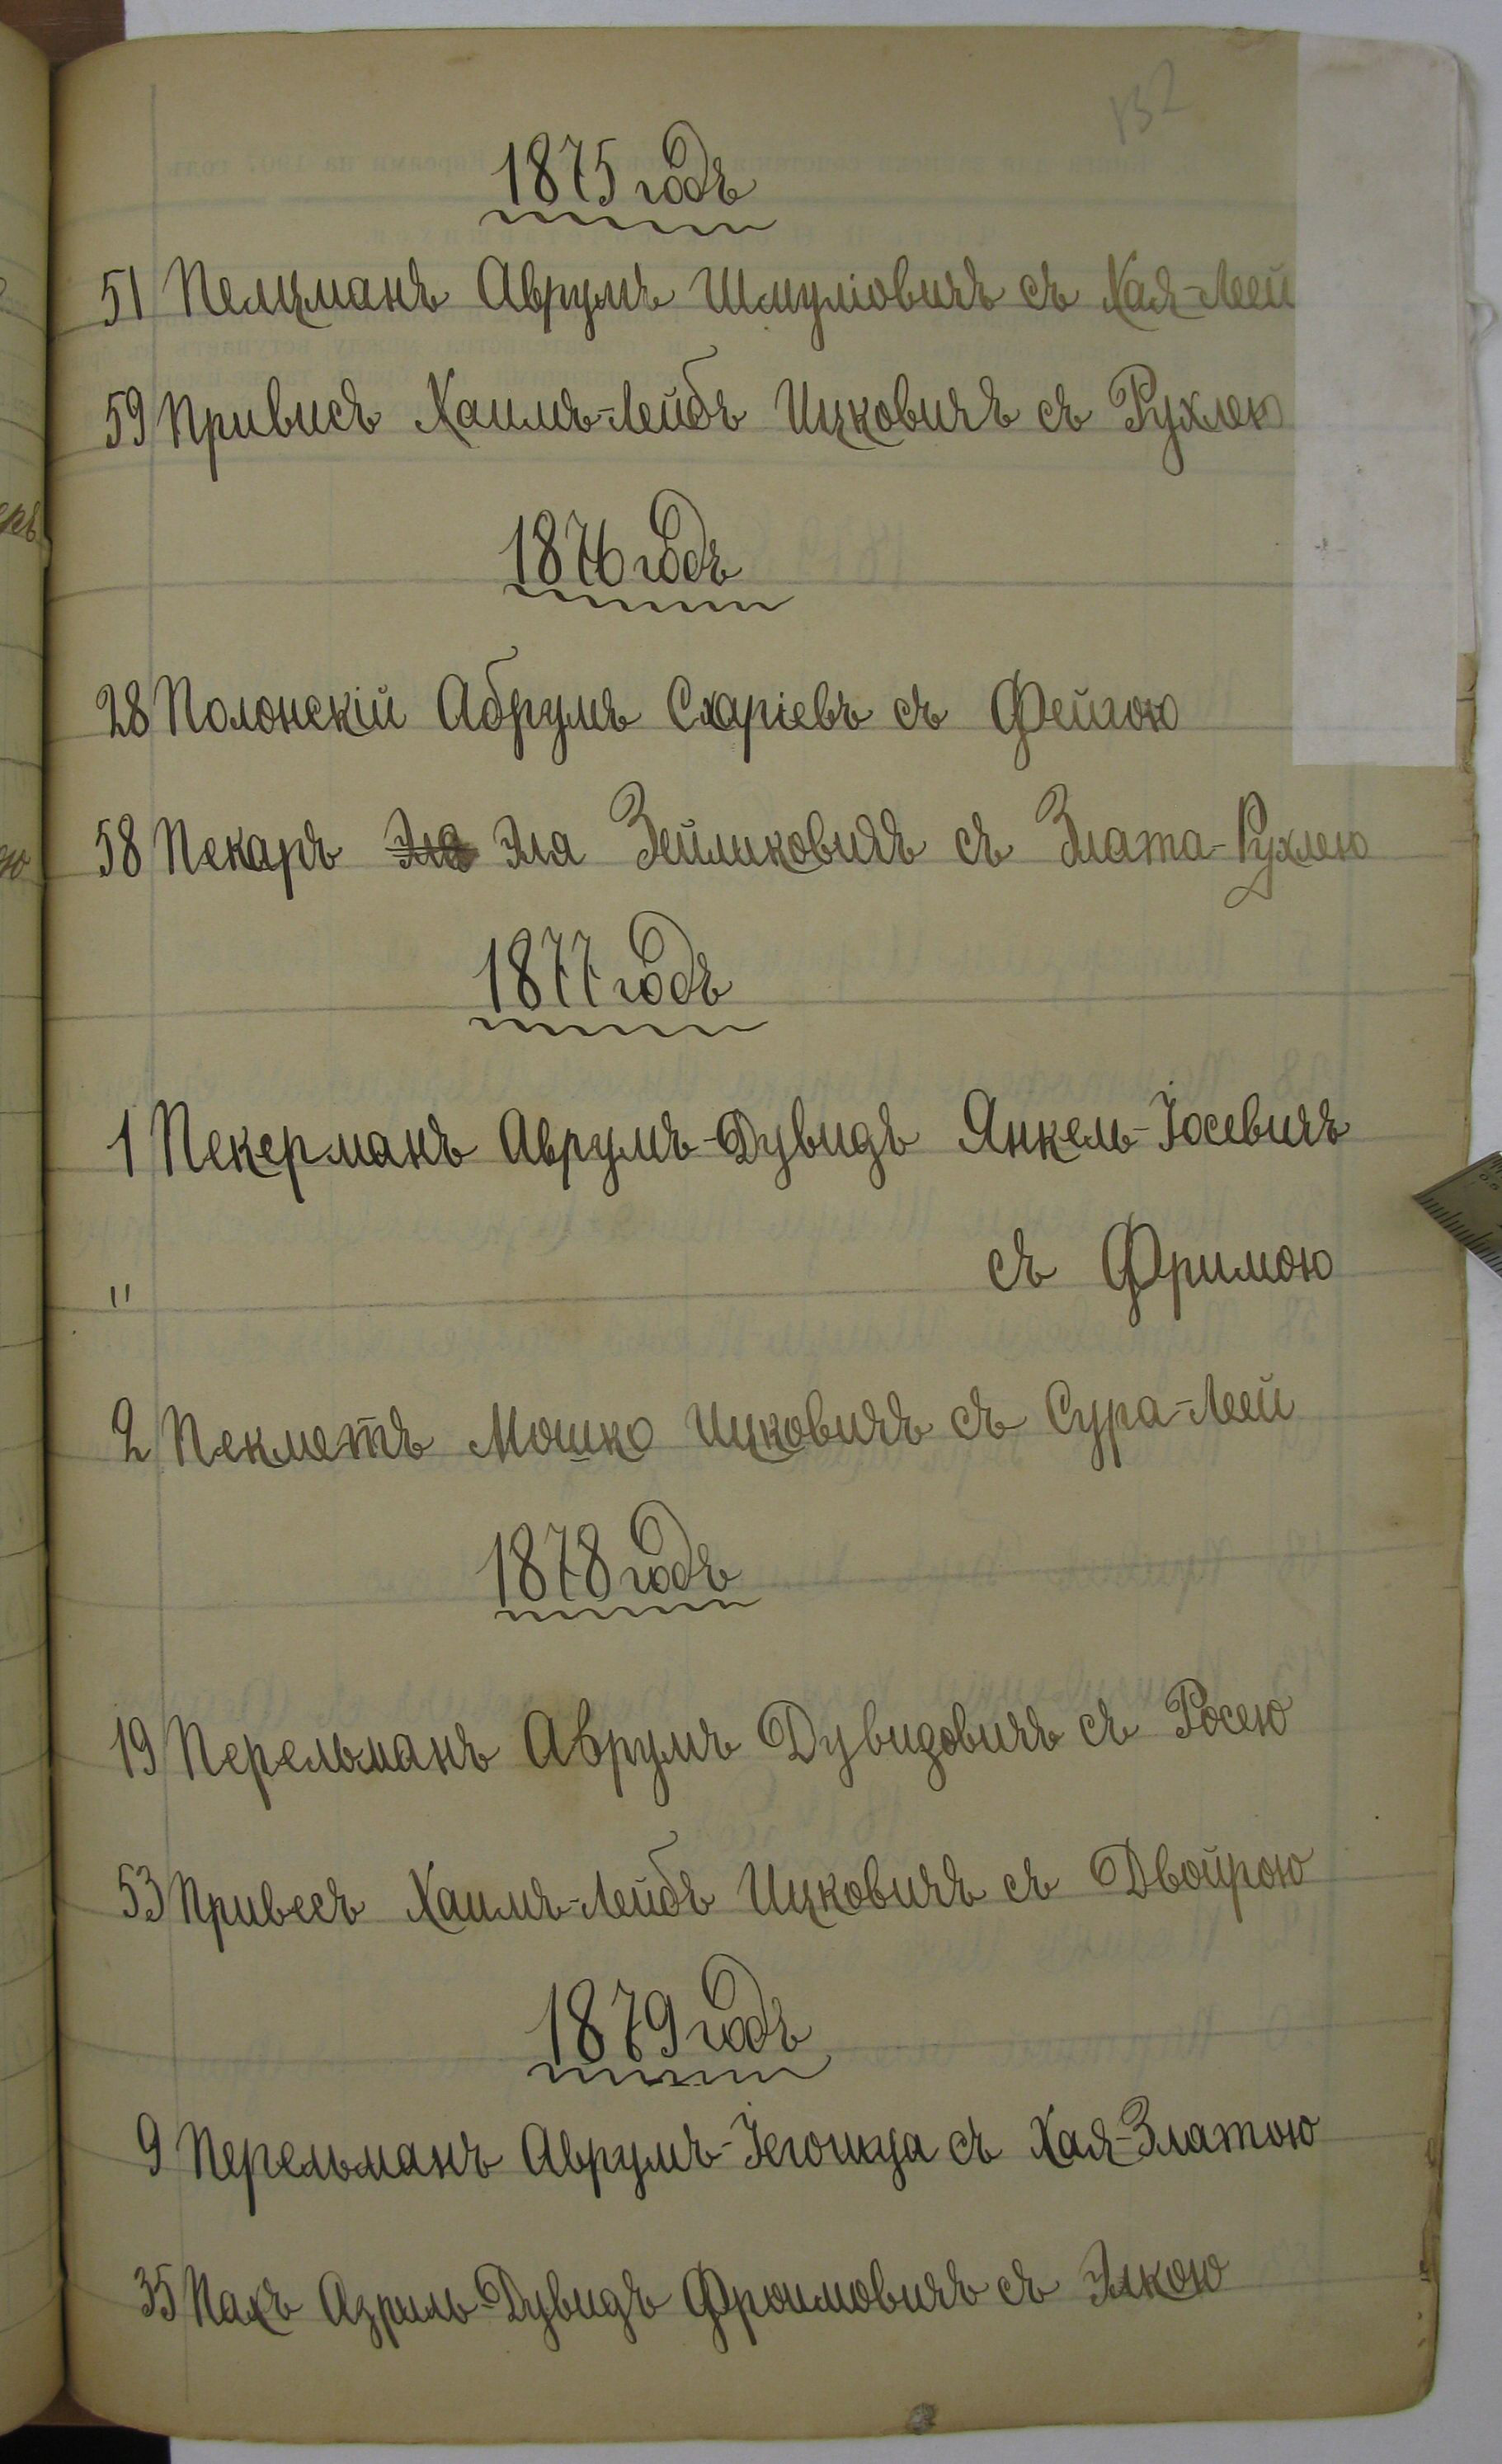 132
1875 годъ
51 Пелцманъ Аврумъ Шмуліовичъ съ Хая-Леей
59 Привисъ Хаимъ-Лейбъ Ицковичъ съ Рухлею
1876 годъ
28 Полонскій Абрумъ Схаріевъ съ Фейгою
58 Пекаръ Эля Зейликовичъ съ Злата-Рухлею
1877 годъ
1 Пекерманъ Аврумъ-Дувидъ Янкель-Іосевичъ
" съ Фримою
2 Пекметъ Мошко Ицковичъ съ Сура-Леей
1878 годъ
19 Перельманъ Аврумъ Дувидовичъ съ Росею
53 Привесъ Хаимъ-Лейбъ Ицковичъ съ Двойрою
1879 годъ
9 Перельманъ Аврумъ-Іегошуа съ Хая-Златою
35 Пахъ Азриль-Дувидъ Фроимовичъ съ Элкою